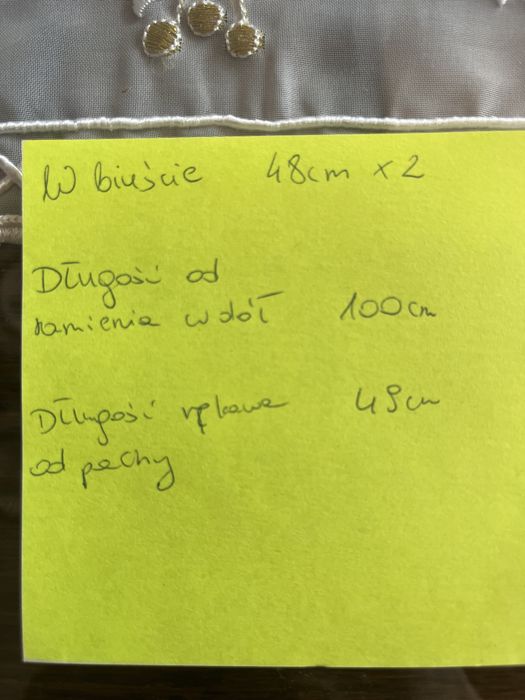 W biuście 48cm x 2
Długość od
ramienia w dół 100cm
Długość rękawa 49cm
od pachy